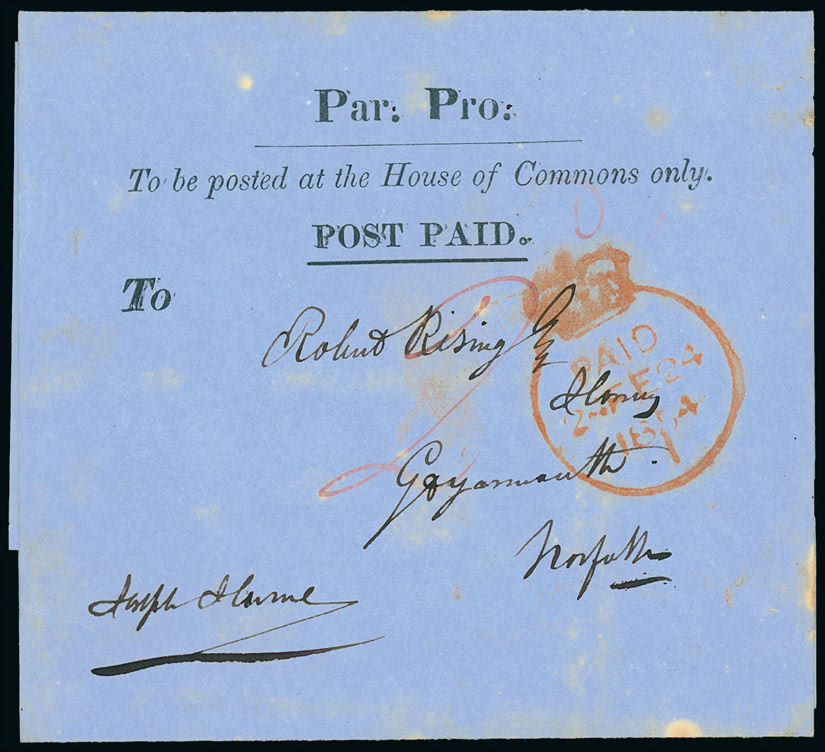 Par: Pro:
To be posted at the House of Commons only.
POST PAID.
To
Robert Rising Esq
PAID
2 FE 24
1854
Horsey
Gt Yarmouth.
Norfolk
Joseph Hume